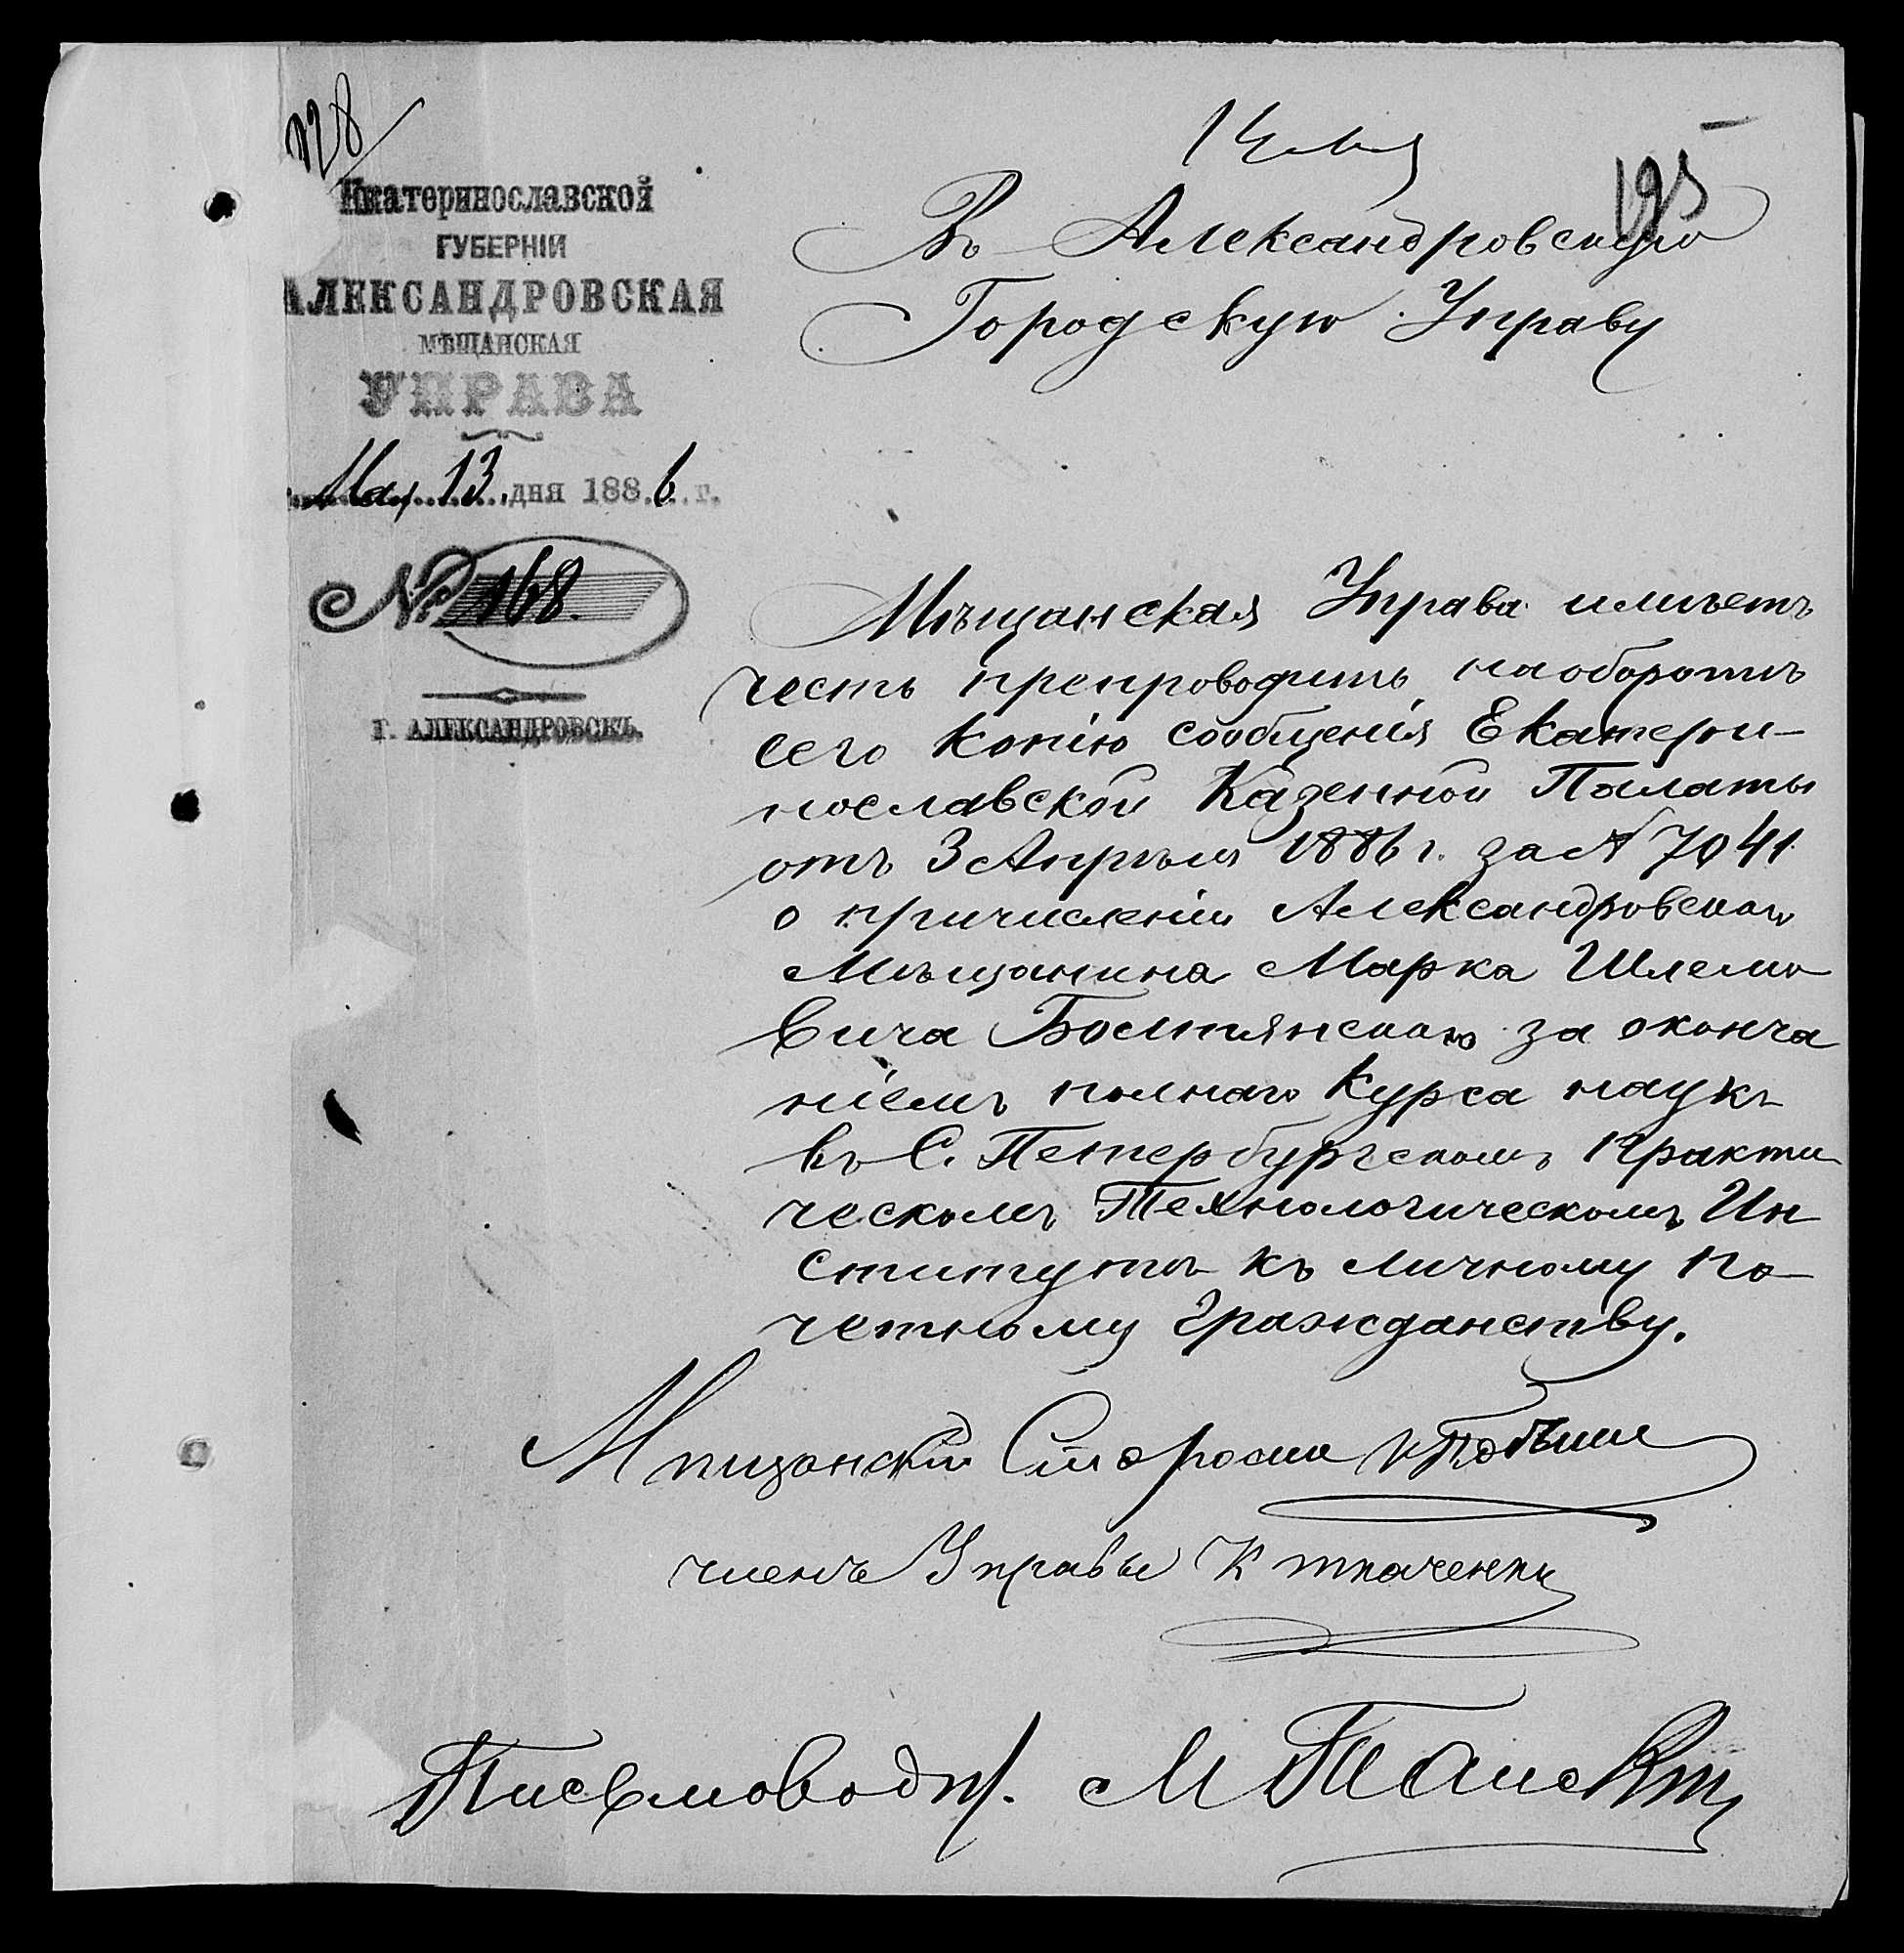 728
Екатеринославской
ГУБЕРНІИ
АЛЕКСАНДРОВСКАЯ
МѢЩАНСКАЯ
УПРАВА
Мая 13 дня 1886 г.
№ 168.
Г. АЛЕКСАНДРОВСКЪ.
14 Мая
195
Въ Александровскую
Городскую Управу
Мѣщанская Управа имѣетъ
честь препроводить на оборотѣ
сего копію сообщенія Екатери-
нославской Казенной Палаты
отъ 3 Апрѣля 1886 г. за № 7041
о причисленіи Александровскаго
Мѣщанина Марка Шлемо
вича Бостянскаго за оконча
ніемъ полнаго курса наукъ
въ С. Петербургскомъ Практи
ческомъ Технологическомъ Ин
ститутѣ къ личному по-
четному гражданству.
Мѣщанскій Староста
членъ Управы К Ткаченко
Письмовод. М